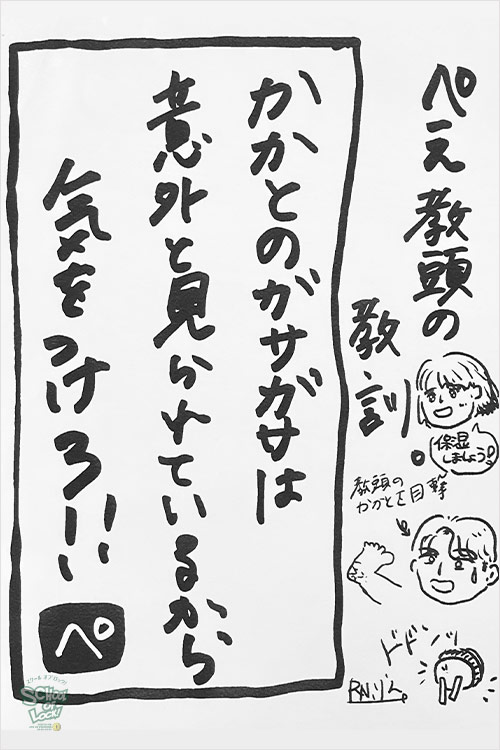 ぺえ教頭の
教訓。
保湿
しましょう!
教頭の
かかとを目撃
ドドン!
RN.りん。
かかとのガサガサは
意外と見られているから
気をつけろーい!!
ぺ
スクール オブ ロック!
SCHOOL
OF
LOCK!